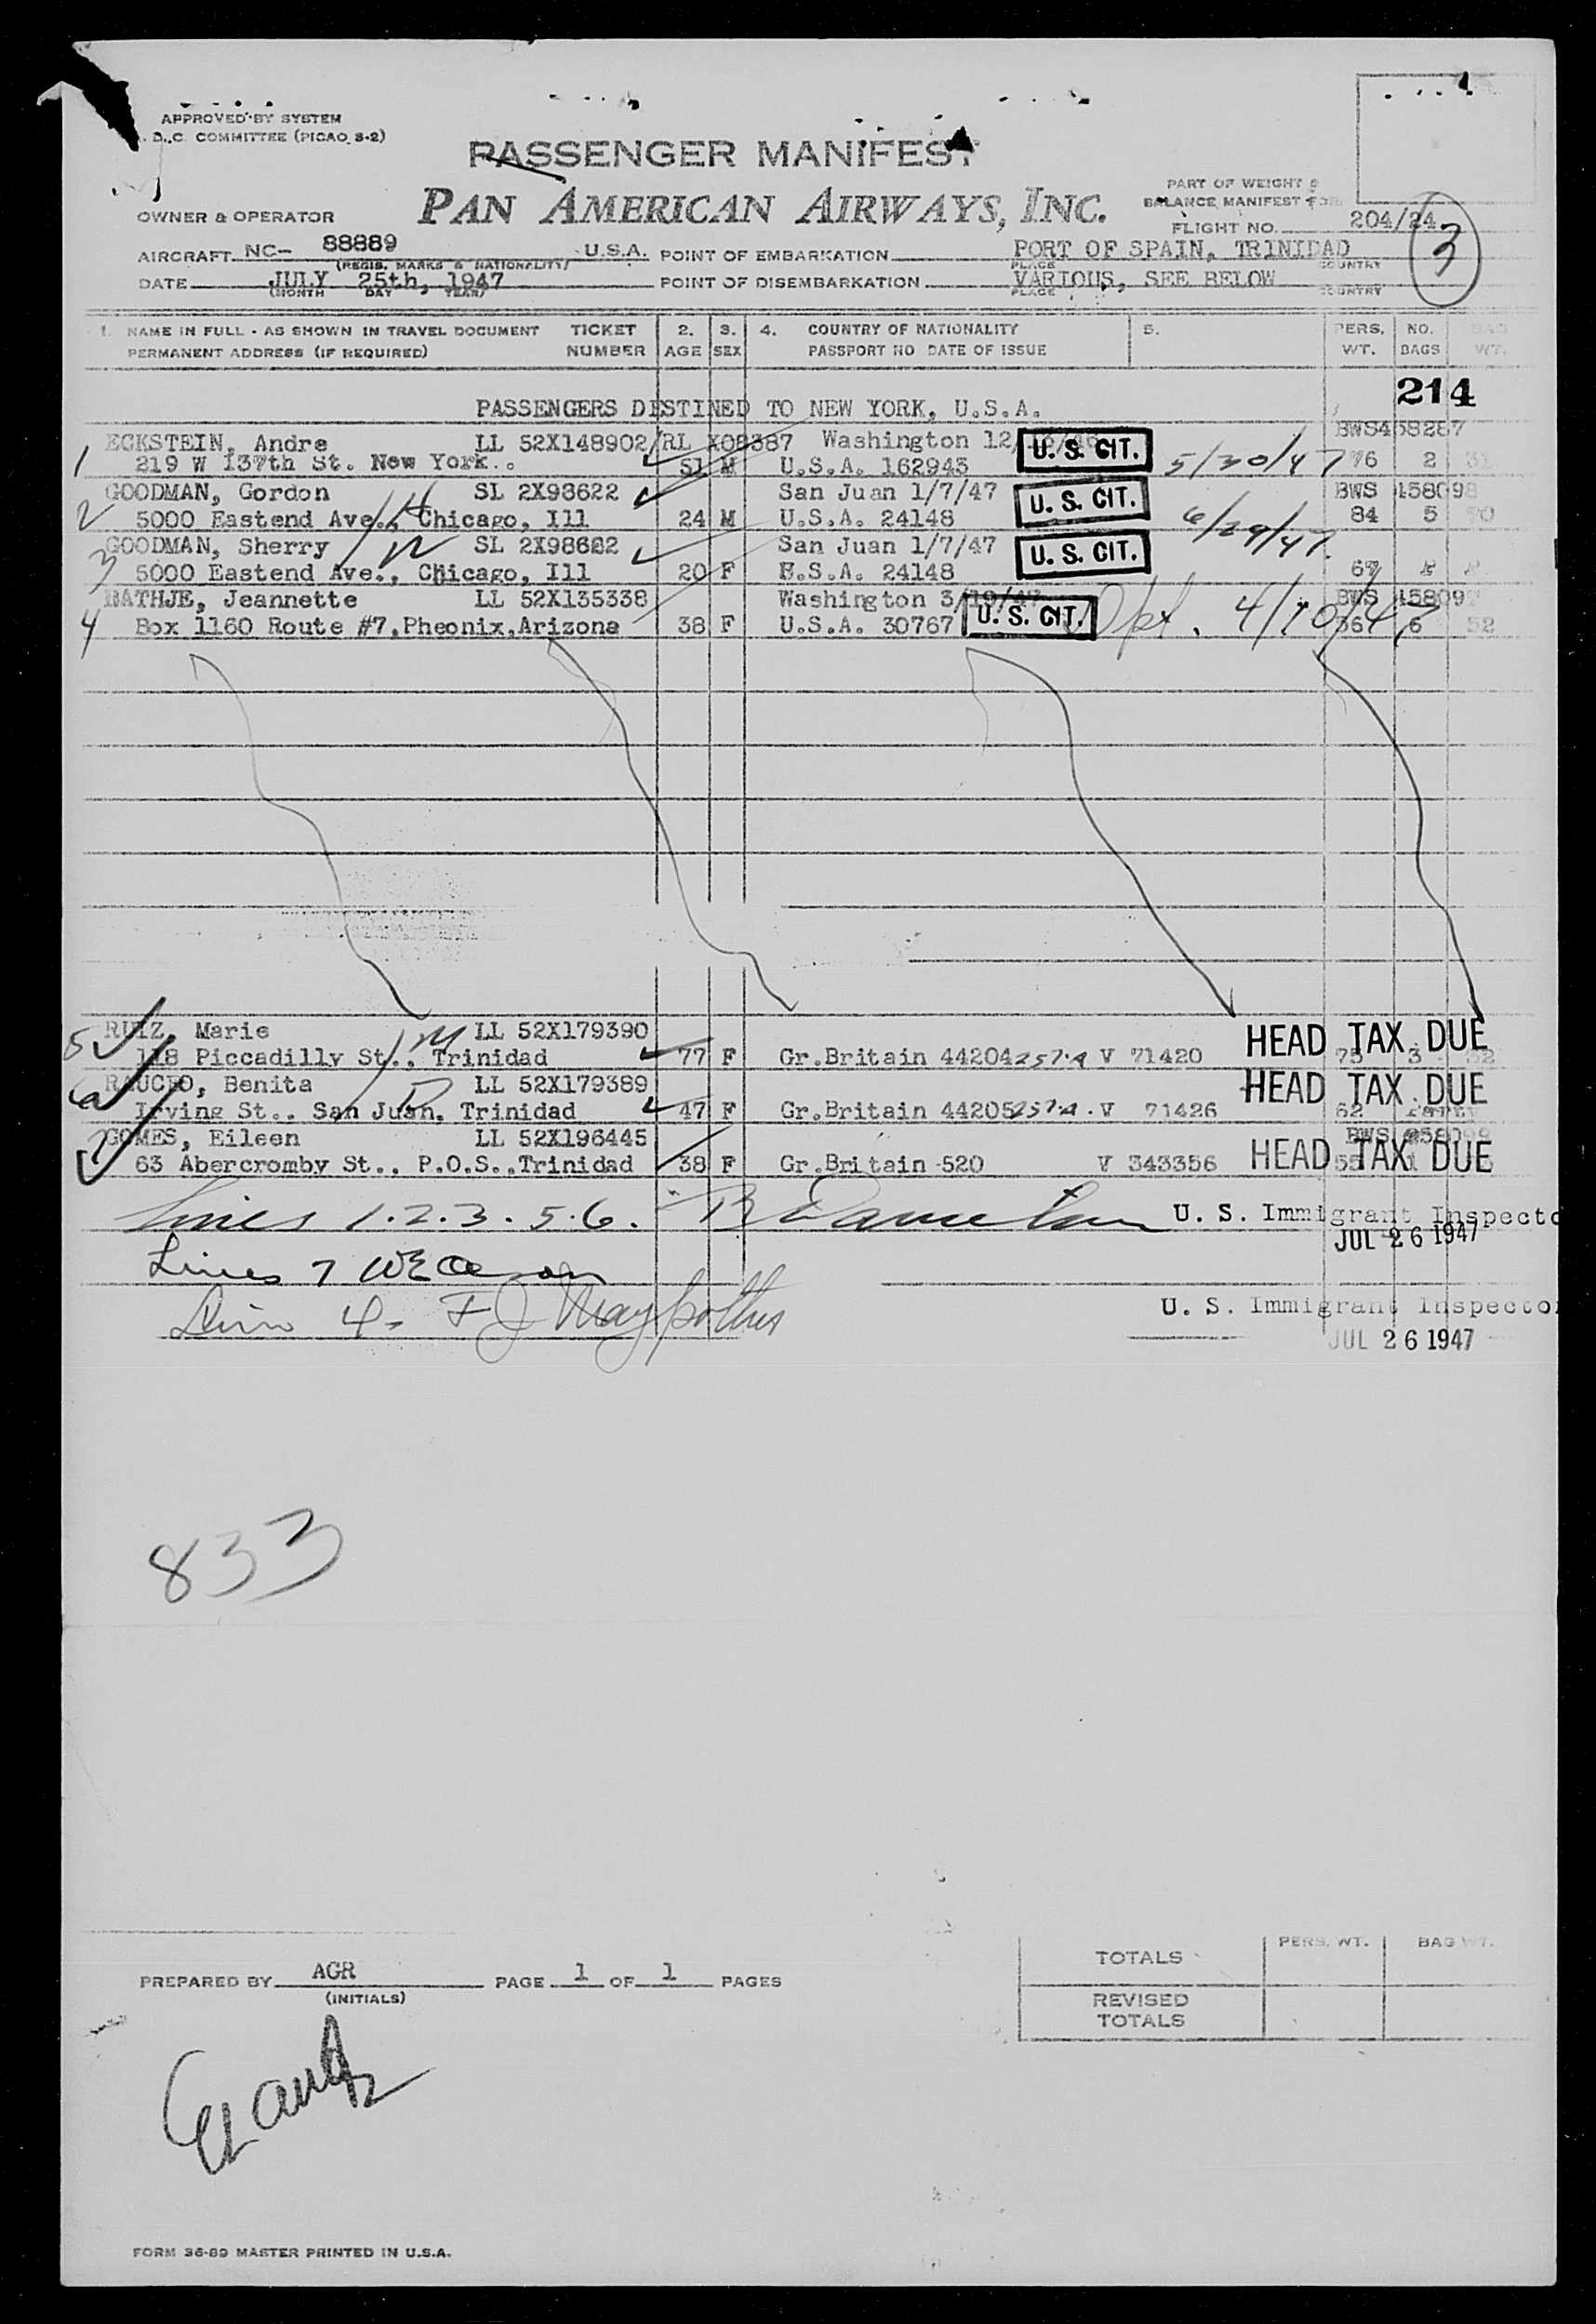 APPROVED BY SYSTEM
D. C. COMMITTEE (PICAO S-2)
PASSENGER MANIFEST
PAN AMERICAN AIRWAYS, INC.
PART OF WEIGHT &
BALANCE MANIFEST FOR
OWNER & OPERATOR
FLIGHT NO. 204/24
3
AIRCRAFT NC- 88889 U.S.A. POINT OF EMBARKATION PORT OF SPAIN, TRINIDAD
(REGIS. MARKS & NATIONALITY) PLACE COUNTRY
DATE JULY 25th, 1947 POINT OF DISEMBARKATION VARIOUS, SEE BELOW
(MONTH DAY YEAR) PLACE COUNTRY
1. NAME IN FULL - AS SHOWN IN TRAVEL DOCUMENT TICKET 2. 3. 4. COUNTRY OF NATIONALITY 5. PERS. NO. BAG
PERMANENT ADDRESS (IF REQUIRED) NUMBER AGE SEX PASSPORT NO DATE OF ISSUE WT. BAGS WT.
214
PASSENGERS DESTINED TO NEW YORK, U.S.A.
ECKSTEIN, Andre LL 52X148902/RL X08387 Washington 12/ U.S. CIT. BWS458287
1 219 W 137th St. New York.. 51 M U.S.A. 162943 5/30/47 76 2
GOODMAN, Gordon SL 2X98622 San Juan 1/7/47 U. S. CIT. BWS 458098
2 5000 Eastend Ave., Chicago, Ill 24 M U.S.A. 24148 6/29/47 84 5
GOODMAN, Sherry SL 2X98622 San Juan 1/7/47 U. S. CIT.
3 5000 Eastend Ave., Chicago, Ill 20 F U.S.A. 24148
BATHJE, Jeannette LL 52X135338 Washington 3/19/47 U. S. CIT. BWS 458097
4 Box 1160 Route #7, Pheonix, Arizona 38 F U.S.A. 30767 4/10/47 6 52
5 RUIZ, Marie LL 52X179390 HEAD TAX DUE
118 Piccadilly St., Trinidad 77 F Gr.Britain 44204 257a V 71420 75 3
6 RAUCEO, Benita LL 52X179389 HEAD TAX DUE
Irving St., San Juan, Trinidad 47 F Gr.Britain 44205 257a V 71426 62
7 GOMES, Eileen LL 52X196445 BWS
63 Abercromby St., P.O.S., Trinidad 38 F Gr.Britain 520 V 343356 HEAD TAX DUE 55 1
Lines 1.2.3.5.6. U. S. Immigrant Inspecto
JUL 26 1947
Lines 7
Line 4- U. S. Immigrant Inspecto
JUL 26 1947
833
TOTALS PERS. WT. BAG WT.
PREPARED BY AGR PAGE 1 OF 1 PAGES
(INITIALS)
REVISED
TOTALS
FORM 36-89 MASTER PRINTED IN U.S.A.